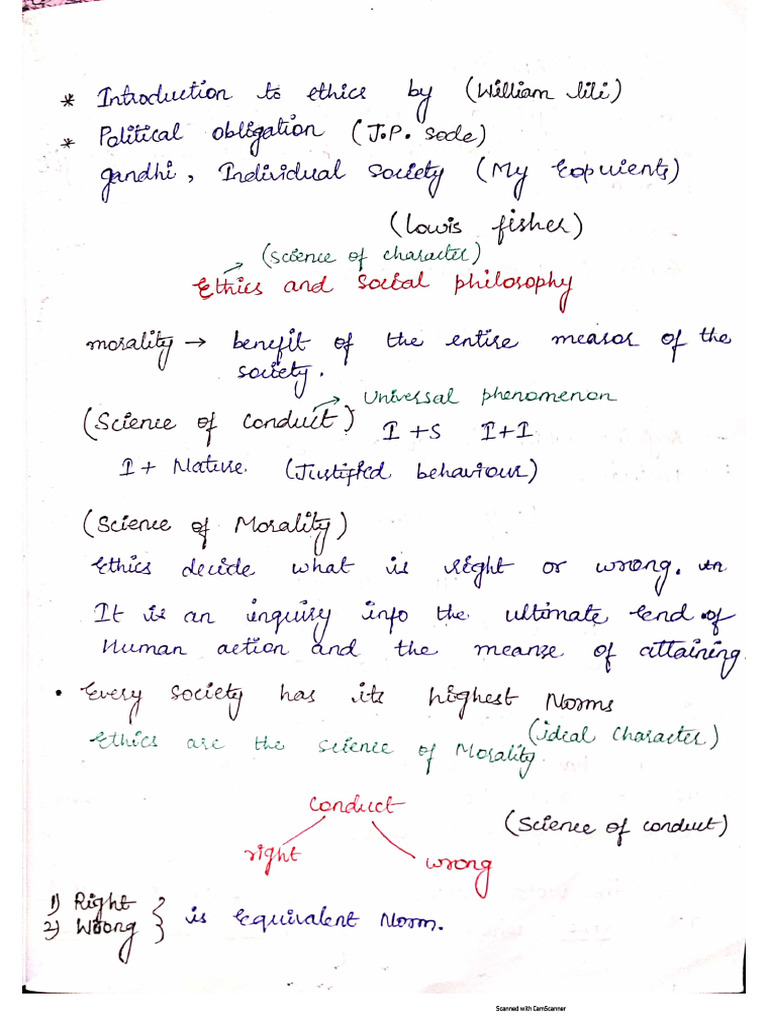 * Introduction to ethics by (William lili)
* Political obligation (J.P. sode)
gandhi, Individual society (My Expuients)
(lowis fisher)
(science of character)
Ethics and social philosophy
morality → benefit of the entire measor of the
society.
Universal phenomenon
(Science of conduct) I+S I+I
I + Nature. (Justified behaviour)
(Science of Morality)
Ethics decide what is right or wrong.
It is an inquiry info the ultimate End of
Human action and the meanse of attaining
• Every society has its highest Norms
(ideal character)
Ethics are the science of Morality.
conduct
(Science of conduct)
right
wrong
1) Right
2) Wrong } is Equivalent Norm.
Scanned with CamScanner